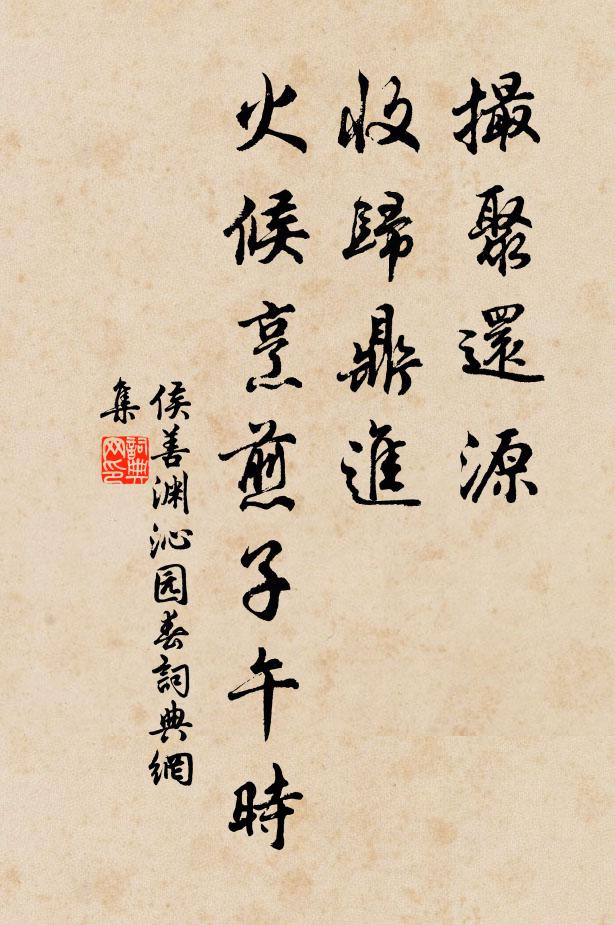 撮聚還源
收歸鼎進
火候烹煎子午時
侯善渊沁园春詞典網
集
詞典
网印